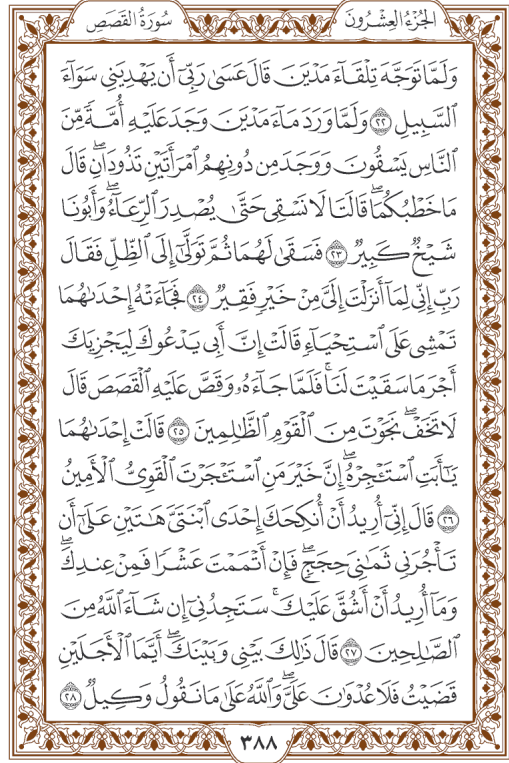 الجُزْءُ العِشْرُونَ سُورَةُ القَصَصِ
وَلَمَّا تَوَجَّهَ تِلْقَآءَ مَدْيَنَ قَالَ عَسَىٰ رَبِّىٓ أَن يَهْدِيَنِى سَوَآءَ
ٱلسَّبِيلِ ٢٢ وَلَمَّا وَرَدَ مَآءَ مَدْيَنَ وَجَدَ عَلَيْهِ أُمَّةً مِّنَ
ٱلنَّاسِ يَسْقُونَ وَوَجَدَ مِن دُونِهِمُ ٱمْرَأَتَيْنِ تَذُودَانِۖ قَالَ
مَا خَطْبُكُمَاۖ قَالَتَا لَا نَسْقِى حَتَّىٰ يُصْدِرَ ٱلرِّعَآءُۖ وَأَبُونَا
شَيْخٌ كَبِيرٌ ٢٣ فَسَقَىٰ لَهُمَا ثُمَّ تَوَلَّىٰٓ إِلَى ٱلظِّلِّ فَقَالَ
رَبِّ إِنِّى لِمَآ أَنزَلْتَ إِلَىَّ مِنْ خَيْرٍ فَقِيرٌ ٢٤ فَجَآءَتْهُ إِحْدَىٰهُمَا
تَمْشِى عَلَى ٱسْتِحْيَآءٍ قَالَتْ إِنَّ أَبِى يَدْعُوكَ لِيَجْزِيَكَ
أَجْرَ مَا سَقَيْتَ لَنَاۚ فَلَمَّا جَآءَهُۥ وَقَصَّ عَلَيْهِ ٱلْقَصَصَ قَالَ
لَا تَخَفْۖ نَجَوْتَ مِنَ ٱلْقَوْمِ ٱلظَّٰلِمِينَ ٢٥ قَالَتْ إِحْدَىٰهُمَا
يَٰٓأَبَتِ ٱسْتَـْٔجِرْهُۖ إِنَّ خَيْرَ مَنِ ٱسْتَـْٔجَرْتَ ٱلْقَوِىُّ ٱلْأَمِينُ
٢٦ قَالَ إِنِّىٓ أُرِيدُ أَنْ أُنكِحَكَ إِحْدَى ٱبْنَتَىَّ هَٰتَيْنِ عَلَىٰٓ أَن
تَأْجُرَنِى ثَمَٰنِىَ حِجَجٍۖ فَإِنْ أَتْمَمْتَ عَشْرًا فَمِنْ عِندِكَۖ
وَمَآ أُرِيدُ أَنْ أَشُقَّ عَلَيْكَۚ سَتَجِدُنِىٓ إِن شَآءَ ٱللَّهُ مِنَ
ٱلصَّٰلِحِينَ ٢٧ قَالَ ذَٰلِكَ بَيْنِى وَبَيْنَكَۖ أَيَّمَا ٱلْأَجَلَيْنِ
قَضَيْتُ فَلَا عُدْوَٰنَ عَلَىَّۖ وَٱللَّهُ عَلَىٰ مَا نَقُولُ وَكِيلٌ ٢٨
٣٨٨